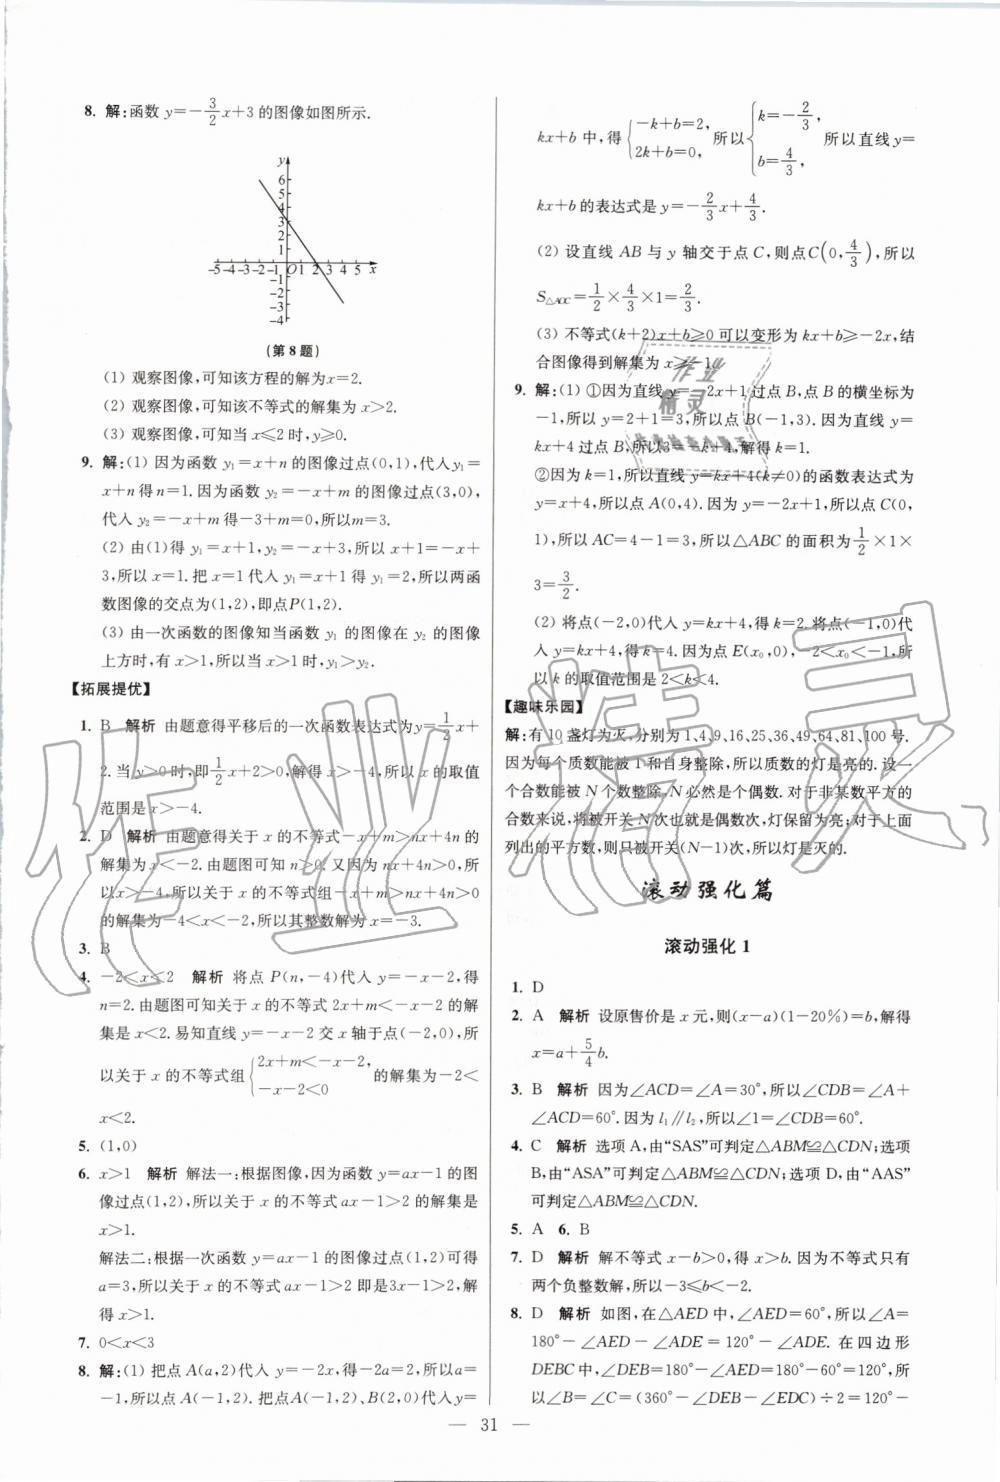 8. 解:函数 y=-3/2x+3 的图像如图所示.
y
6
5
4
3
2
1
-5-4-3-2-1O12345 x
-1
-2
-3
-4
(第8题)
(1) 观察图像,可知该方程的解为x=2.
(2) 观察图像,可知该不等式的解集为 x>2.
(3) 观察图像,可知当 x≤2 时,y≥0.
9. 解:(1) 因为函数 y₁=x+n 的图像过点(0,1),代入y₁=
x+n 得 n=1. 因为函数 y₂=-x+m 的图像过点(3,0),
代入 y₂=-x+m 得-3+m=0,所以m=3.
(2) 由(1)得 y₁=x+1,y₂=-x+3,所以 x+1=-x+
3,所以 x=1. 把 x=1 代入 y₁=x+1 得 y₁=2,所以两函
数图像的交点为(1,2),即点P(1,2).
(3) 由一次函数的图像知当函数 y₁ 的图像在 y₂ 的图像
上方时,有 x>1,所以当 x>1 时,y₁>y₂.
【拓展提优】
1. B 解析 由题意得平移后的一次函数表达式为y=1/2x+
2.当 y>0 时,即1/2x+2>0,解得 x>-4,所以 x 的取值
范围是 x>-4.
2. D 解析 由题意得关于 x 的不等式-x+m>nx+4n 的
解集为 x<-2. 由题图可知 n>0. 又因为 nx+4n>0,所
以x>-4,所以关于 x 的不等式组-x+m>nx+4n>0
的解集为-4<x<-2,所以其整数解为 x=-3.
3. B
4. -2<x<2 解析 将点 P(n,-4)代入 y=-x-2,得
n=2. 由题图可知关于 x 的不等式 2x+m<-x-2 的解
集是 x<2. 易知直线 y=-x-2 交 x 轴于点(-2,0),所
以关于 x 的不等式组{2x+m<-x-2, -x-2<0 的解集为-2<
x<2.
5. (1,0)
6. x>1 解析 解法一:根据图像,因为函数 y=ax-1 的图
像过点(1,2),所以关于 x 的不等式 ax-1>2 的解集是
x>1.
解法二:根据一次函数 y=ax-1 的图像过点(1,2)可得
a=3,所以关于 x 的不等式 ax-1>2 即是3x-1>2,解
得 x>1.
7. 0<x<3
8. 解:(1) 把点 A(a,2)代入 y=-2x,得-2a=2,所以a=
-1,所以点 A(-1,2). 把点A(-1,2)、B(2,0)代入 y=
kx+b 中,得{-k+b=2, 2k+b=0, 所以{k=-2/3, b=4/3, 所以直线 y=
kx+b 的表达式是 y=-2/3x+4/3.
(2) 设直线 AB 与 y 轴交于点 C,则点C(0,4/3),所以
S△AOC=1/2×4/3×1=2/3.
(3) 不等式(k+2)x+b≥0 可以变形为 kx+b≥-2x,结
合图像得到解集为 x≥-1.
9. 解:(1) ①因为直线 y=-2x+1 过点 B,点 B 的横坐标为
-1,所以 y=2+1=3,所以点 B(-1,3). 因为直线 y=
kx+4 过点 B,所以3=-k+4,解得 k=1.
②因为 k=1,所以直线 y=kx+4(k≠0)的函数表达式为
y=x+4,所以点 A(0,4). 因为 y=-2x+1,所以点 C(0,
1),所以 AC=4-1=3,所以△ABC 的面积为1/2×1×
3=3/2.
(2) 将点(-2,0)代入 y=kx+4,得 k=2. 将点(-1,0)代
入 y=kx+4,得 k=4. 因为点 E(x₀,0),-2<x₀<-1,所
以 k 的取值范围是 2<k<4.
【趣味乐园】
解:有 10 盏灯为灭,分别为 1、4、9、16、25、36、49、64、81、100 号.
因为每个质数能被 1 和自身整除,所以质数的灯是亮的. 设一
个合数能被 N 个数整除,N 必然是个偶数. 对于非某数平方的
合数来说,将被开关 N 次也就是偶数次,灯保留为亮;对于上面
列出的平方数,则只被开关(N-1)次,所以灯是灭的.
滚动强化篇
滚动强化 1
1. D
2. A 解析 设原售价是 x 元,则(x-a)(1-20%)=b,解得
x=a+5/4b.
3. B 解析 因为∠ACD=∠A=30°,所以∠CDB=∠A+
∠ACD=60°. 因为 l₁∥l₂,所以∠1=∠CDB=60°.
4. C 解析 选项 A,由“SAS”可判定△ABM≌△CDN;选项
B,由“ASA”可判定△ABM≌△CDN;选项 D,由“AAS”
可判定△ABM≌△CDN.
5. A 6. B
7. D 解析 解不等式 x-b>0,得 x>b. 因为不等式只有
两个负整数解,所以-3≤b<-2.
8. D 解析 如图,在△AED 中,∠AED=60°,所以∠A=
180°-∠AED-∠ADE=120°-∠ADE. 在四边形
DEBC 中,∠DEB=180°-∠AED=180°-60°=120°,所
以∠B=∠C=(360°-∠DEB-∠EDC)÷2=120°-
— 31 —
作业精灵
作业
精灵